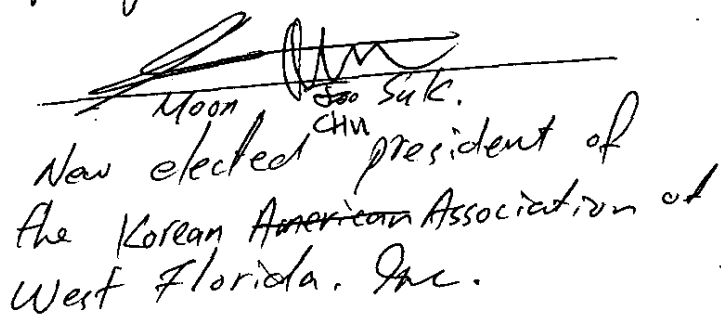 Moon Soo Suk.
CHU
New elected president of
the Korean American Association of
West Florida. Inc.